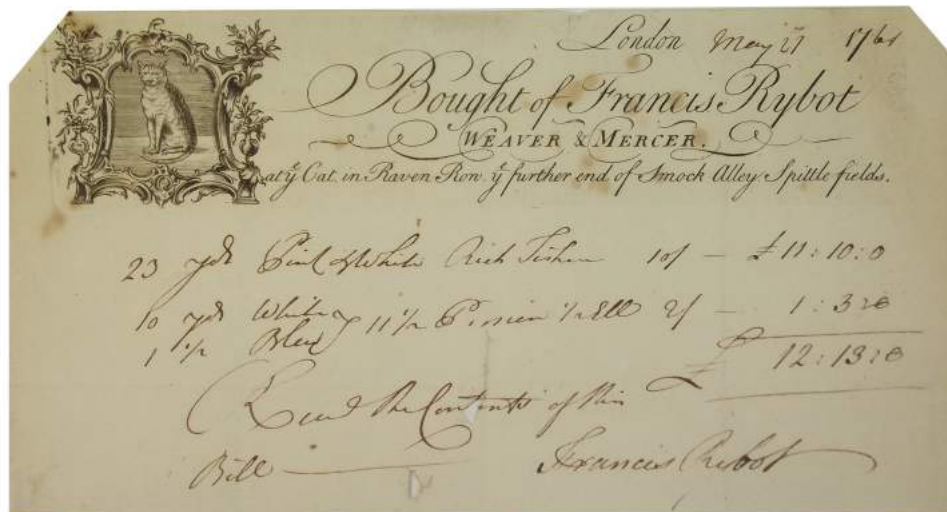 London May 27 176
Bought of Francis Rybot
WEAVER & MERCER.
at ye Cat in Raven Row ye further end of Smock Alley Spittle fields.
23 yds Pink & White Rich 10/ — £ 11:10:0
10 yds White 11 1/2 1/2 Ell 2/ — 1:3:0
1 1/2
£ 12:13:0
Recd the Contents of this
Bill Francis Rybot